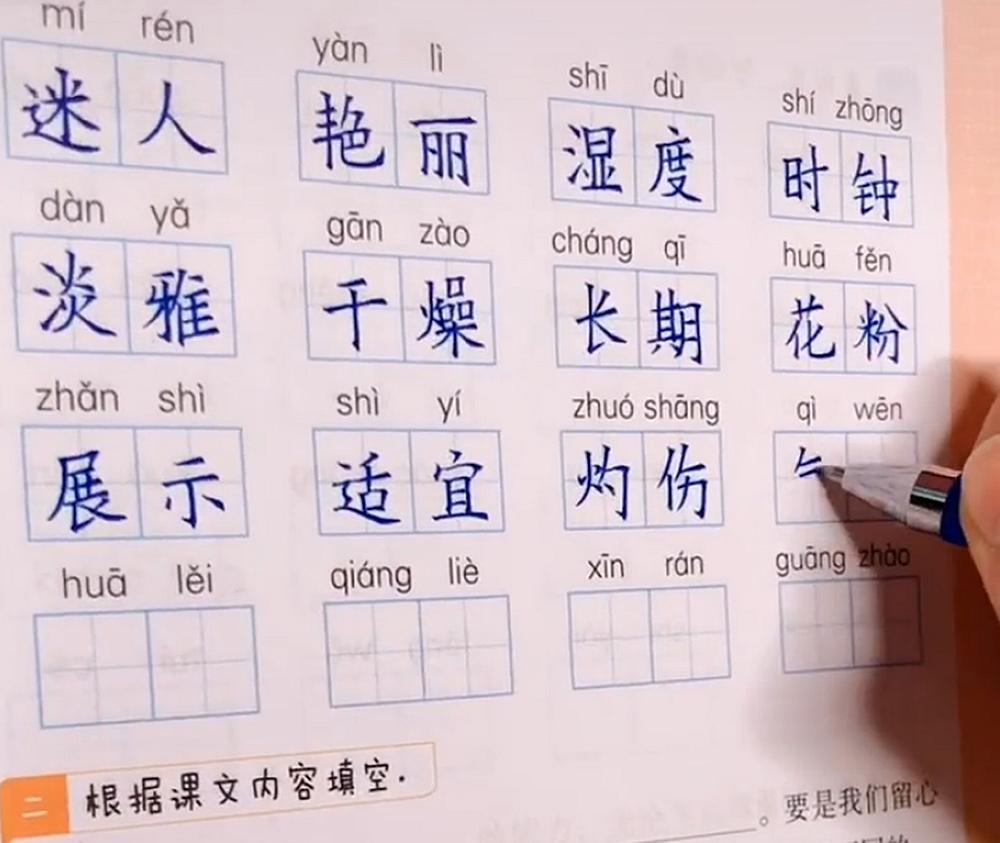 mí rén yàn lì shī dù shí zhōng
迷人 艳丽 湿度 时钟
dàn yǎ gān zào cháng qī huā fěn
淡雅 干燥 长期 花粉
zhǎn shì shì yí zhuó shāng qì wēn
展示 适宜 灼伤
huā lěi qiáng liè xīn rán guāng zhào
二 根据课文内容填空.
。要是我们留心